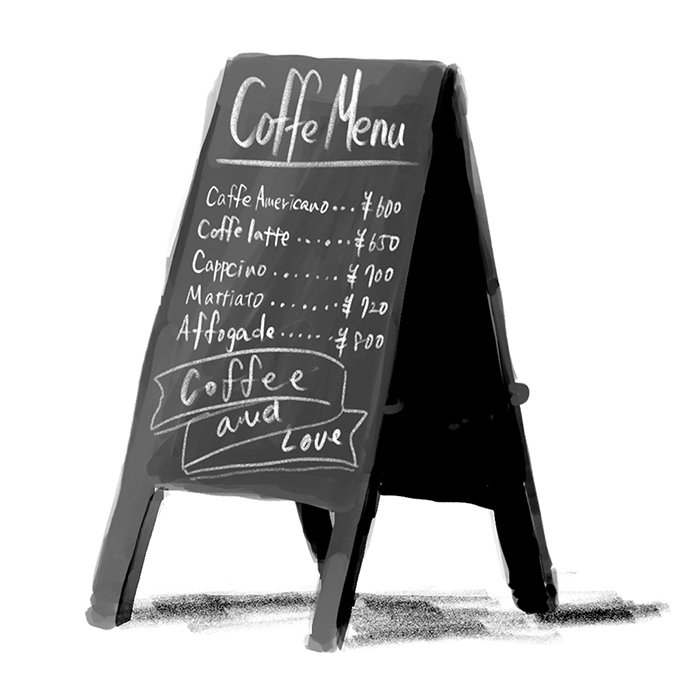 Coffe Menu
Caffe Americano... ¥600
Coffe latte ...... ¥650
Cappcino ....... ¥700
Martiato ....... ¥720
Affogade...... ¥800
Coffee
and
Love